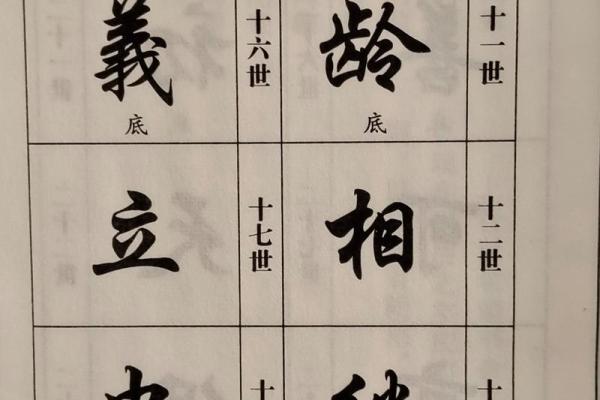 十一世
龄
底
十二世
相
十
十六世
義
底
十七世
立
十